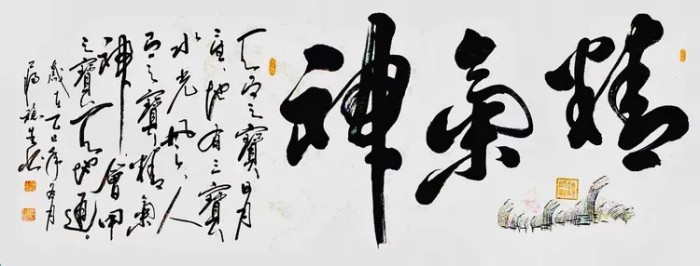 精氣神
天有三寶日月
星地有三寶
水火風人
有三寶精氣
神會用
三寶天地通
歲在乙巳年